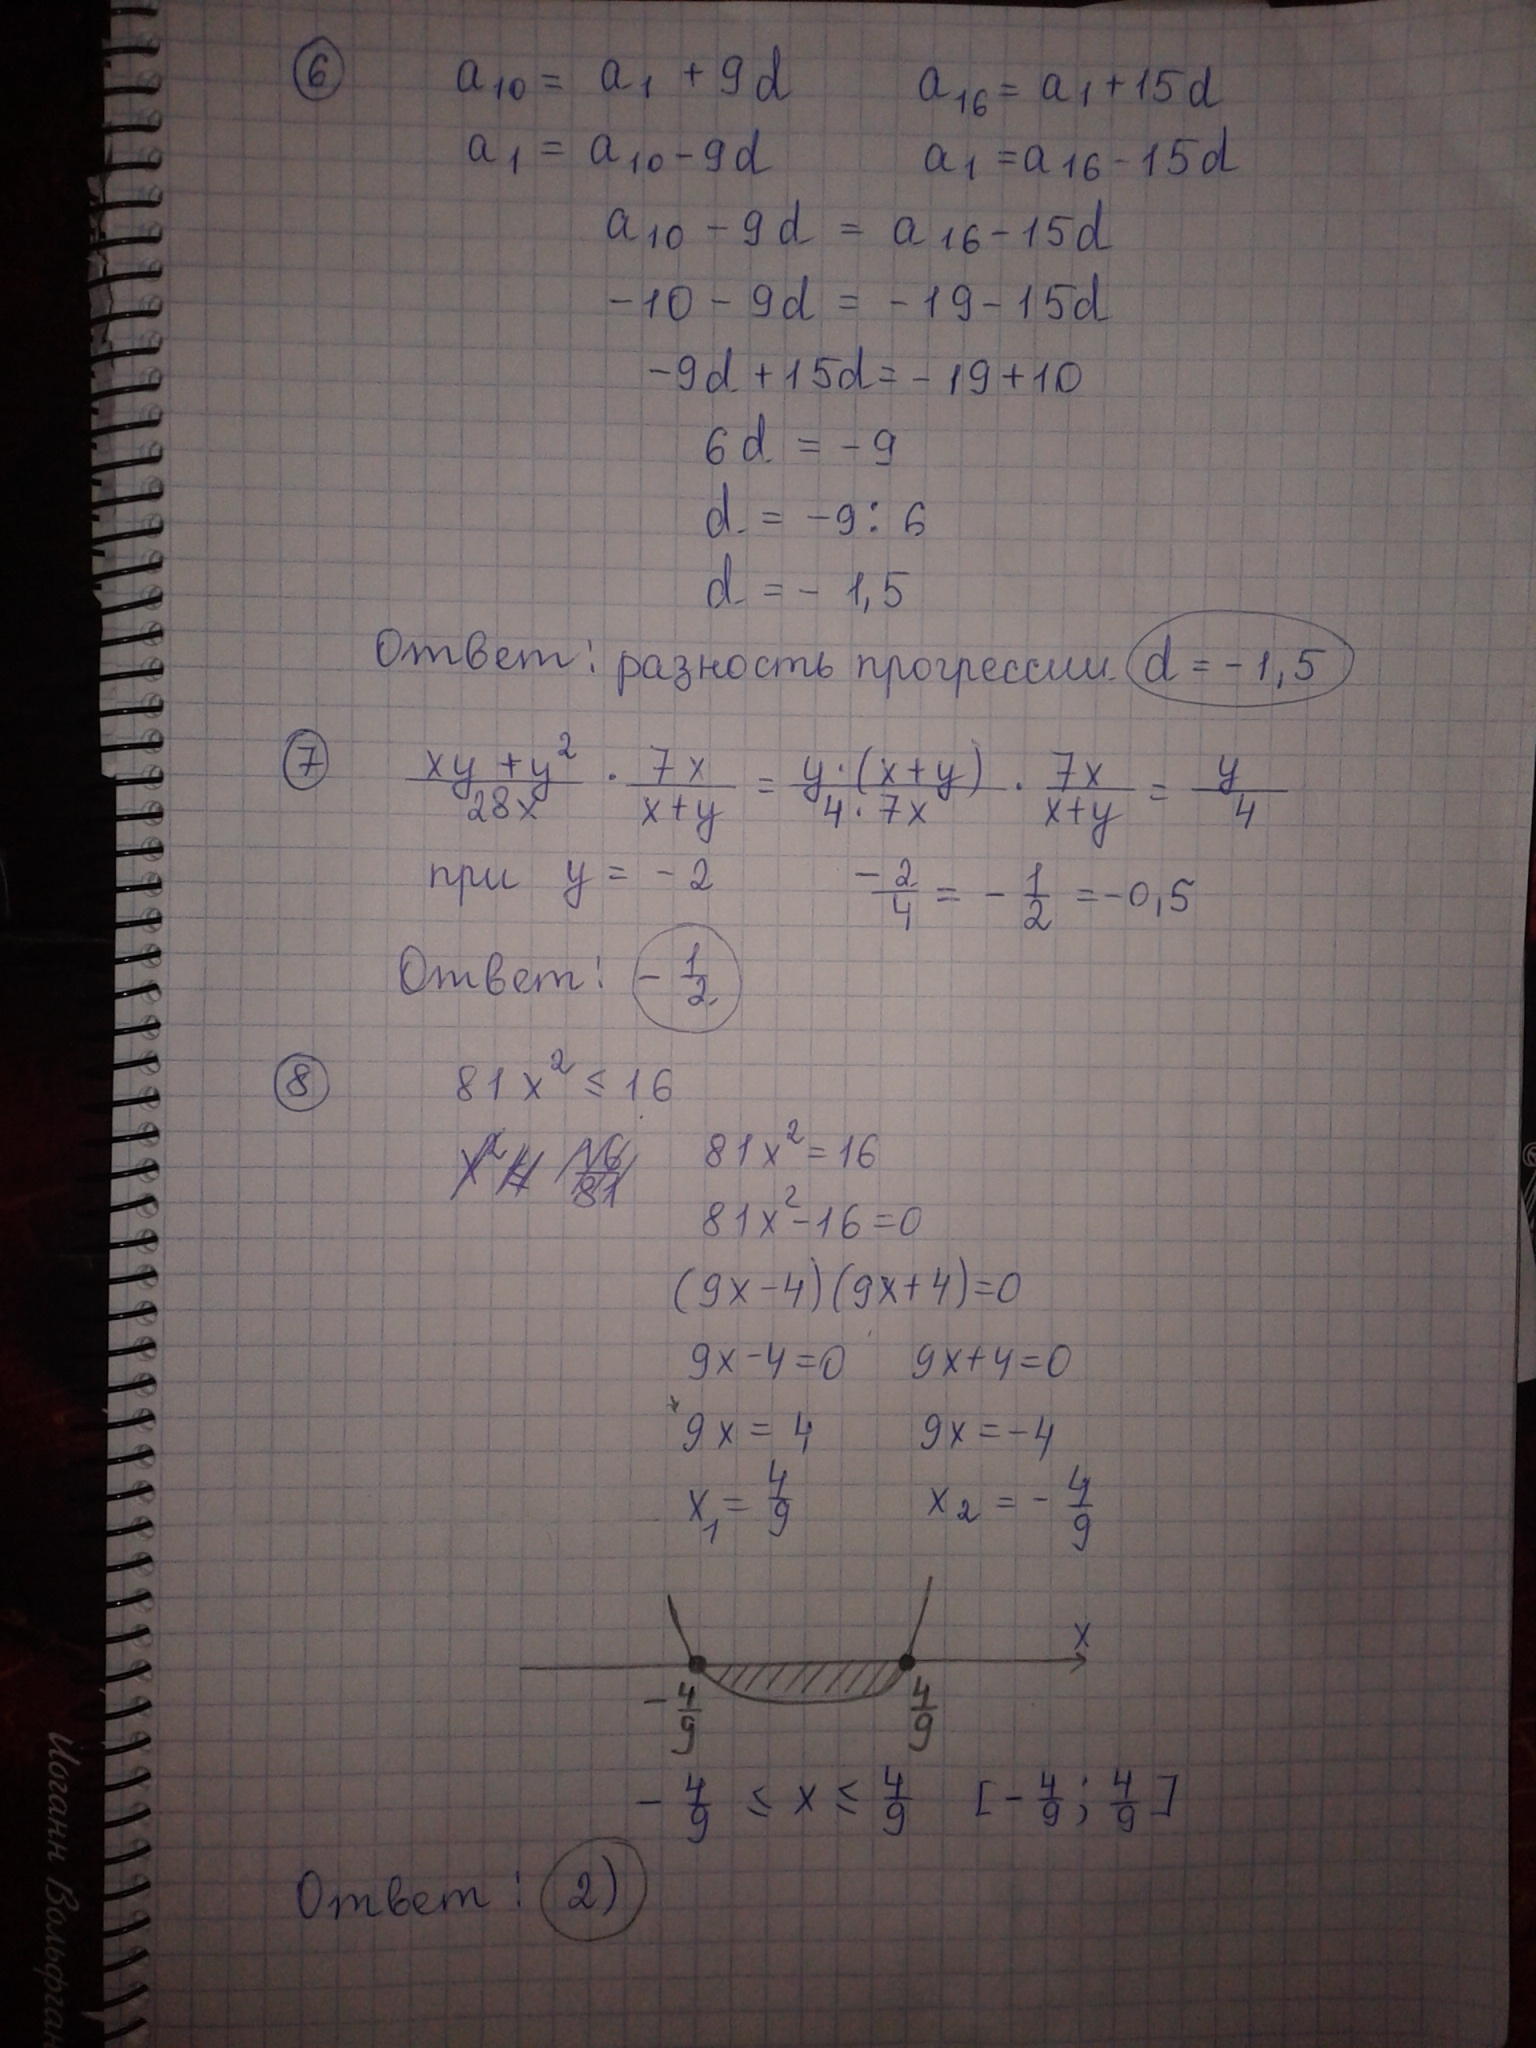 6 a₁₀ = a₁ + 9d a₁₆ = a₁ + 15d
a₁ = a₁₀ - 9d a₁ = a₁₆ - 15d
a₁₀ - 9d = a₁₆ - 15d
-10 - 9d = -19 - 15d
-9d + 15d = -19 + 10
6d = -9
d = -9 : 6
d = -1,5
Ответ: разность прогрессии d = -1,5
7 (xy + y²)/(28x) · (7x)/(x+y) = (y·(x+y))/(4·7x) · (7x)/(x+y) = y/4
при y = -2 -2/4 = -1/2 = -0,5
Ответ: -1/2
8 81x² ≤ 16
81x² = 16
81x² - 16 = 0
(9x - 4)(9x + 4) = 0
9x - 4 = 0 9x + 4 = 0
9x = 4 9x = -4
x₁ = 4/9 x₂ = -4/9
x
-4/9 4/9
-4/9 ≤ x ≤ 4/9 [-4/9; 4/9]
Ответ: 2)
Иоганн Вольфган